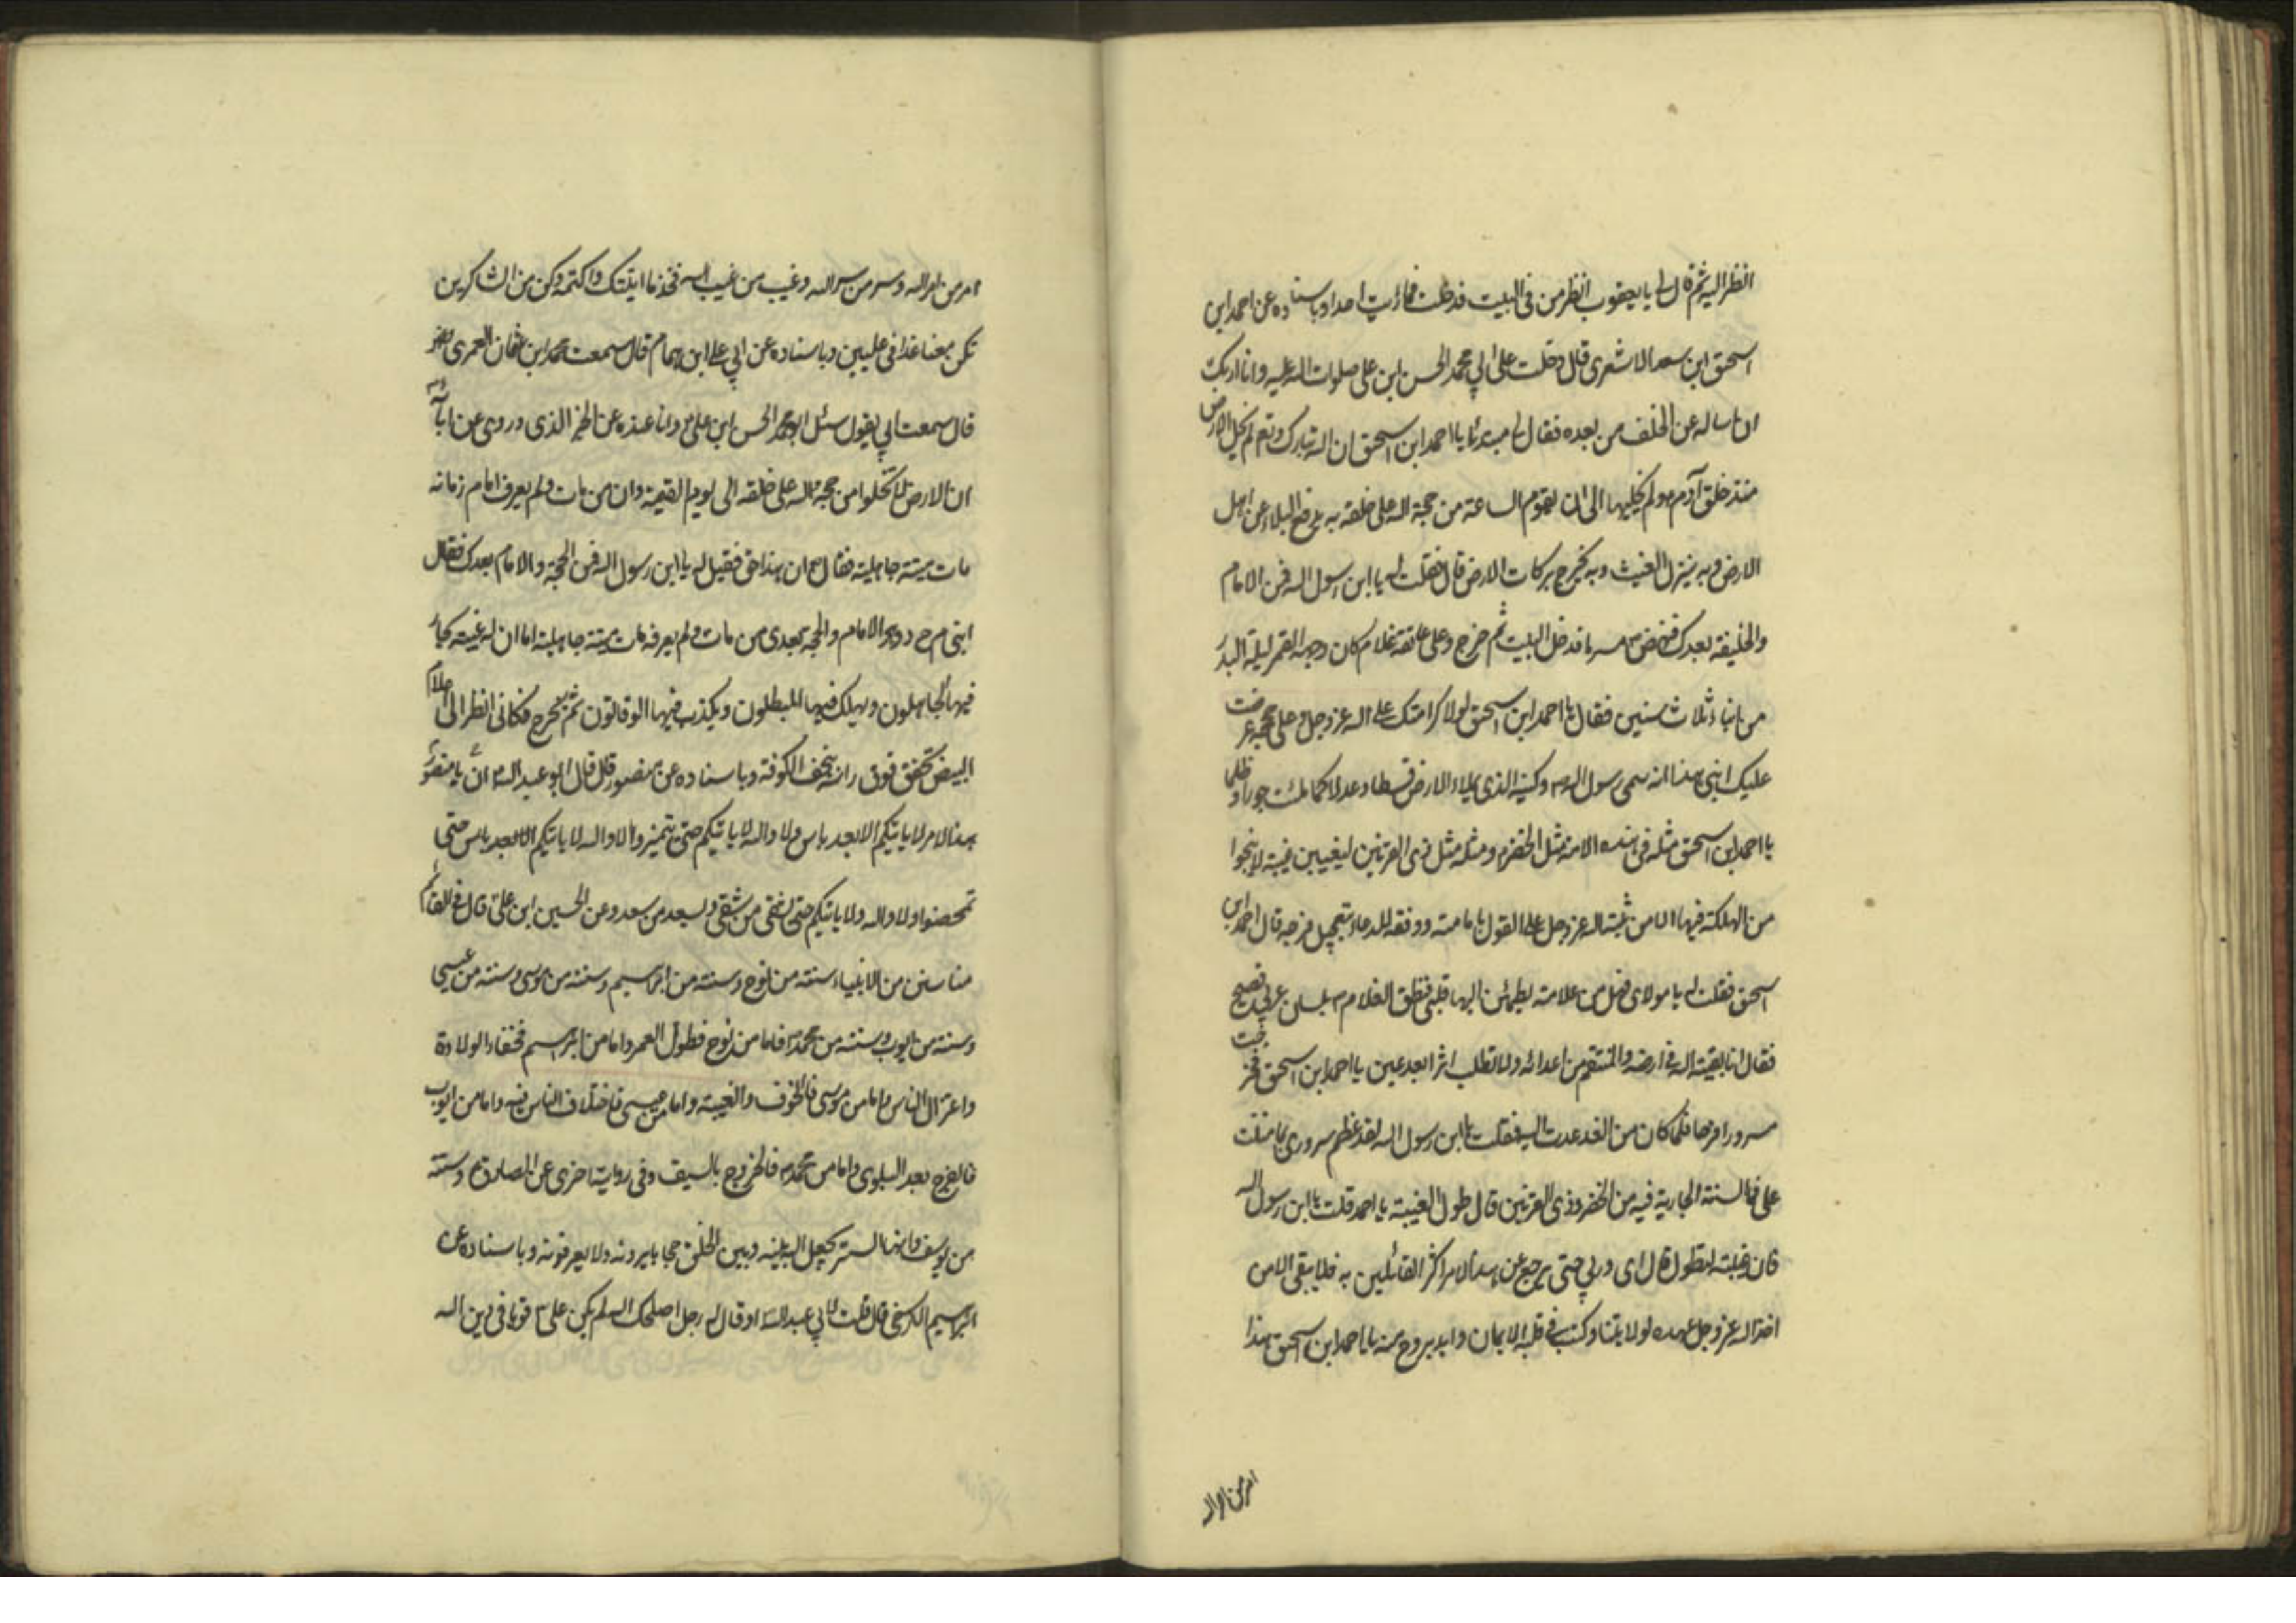 انظر اليه ثم قال لي يا يعقوب انظر من في البيت فدخلت فما رايت احدا وباسناده عن احمد ابن
اسحق ابن سعد الاشعري قال دخلت على ابي محمد الحسن ابن علي صلوات الله عليه وانا اريد
ان اساله عن الخلف من بعده فقال لي مبتدئا يا احمد ابن اسحق ان الله تبارك وتع لم يخل الارض
منذ خلق آدم ولم يخليها الى ان يقوم الساعة من حجة الله على خلقه به يدفع البلاء عن اهل
الارض وبه ينزل الغيث وبه يخرج بركات الارض قال فقلت له يا ابن رسول الله فمن الامام
والخليفة بعدك فنهض مسرعا فدخل البيت ثم خرج وعلى عاتقه غلام كان وجهه القمر ليلة البدر
من ابناء ثلاث سنين فقال يا احمد ابن اسحق لولا كرامتك على الله عز وجل وعلى حججه عرضت
عليك ابني هذا انه سمي رسول الله وكنيه الذي يملاء الارض قسطا وعدلا كما ملئت جورا وظلما
يا احمد ابن اسحق مثله في هذه الامة مثل الخضر ومثله مثل ذي القرنين ليغيبن غيبة لا ينجوا
من الهلكة فيها الا من ثبته الله عز وجل على القول بامامته ووفقه للدعاء بتعجيل فرجه قال احمد ابن
اسحق فقلت له يا مولاي فهل من علامة يطمئن اليها قلبي فنطق الغلام بلسان عربي فصيح
فقال انا بقية الله في ارضه والمنتقم من اعدائه ولا تطلب اثرا بعد عين يا احمد ابن اسحق فخرجت
مسرورا فرحا فلما كان من الغد عدت اليه فقلت يا ابن رسول الله لقد عظم سروري بما مننت
علي فما السنة الجارية فيه من الخضر وذي القرنين قال طول الغيبة يا احمد قلت يا ابن رسول الله
فان غيبته لتطول قال اي وربي حتى يرجع عن هذا الامر اكثر القائلين به فلا يبقى الا من
اخذ الله عز وجل عهده لولايتنا وكتب في قلبه الايمان وايد بروح منه يا احمد ابن اسحق هذا
امر من امر الله
امر من امر الله وسر من سر الله وغيب من غيب الله فخذ ما اتيتك واكتمه وكن من الشاكرين
تكن معنا غدا في عليين وباسناده عن ابي علي ابن همام قال سمعت محمد ابن عثمان العمري
قال سمعت ابي يقول سئل ابو محمد الحسن ابن علي وانا عنده عن الخبر الذي روي عن ابائه
ان الارض لا تخلوا من حجة لله على خلقه الى يوم القيمة وان من مات ولم يعرف امام زمانه
مات ميتة جاهلية فقال ان هذا حق فقيل له يا ابن رسول الله فمن الحجة والامام بعدك فقال
ابني م ح م د وهو الامام والحجة بعدي من مات ولم يعرفه مات ميتة جاهلية اما ان له غيبة يحار
فيها الجاهلون ويهلك فيها المبطلون ويكذب فيها الوقاتون ثم يخرج فكاني انظر الى الاعلام
البيض تخفق فوق راسه بنجف الكوفة وباسناده عن منصور قال قال ابو عبد الله ان يا منصور
هذا الامر لا ياتيكم الا بعد ياس ولا والله لا ياتيكم حتى تتميزوا لا والله لا ياتيكم الا بعد ياس حتى
تمحصوا ولا والله ولا ياتيكم حتى يشقى من شقي ويسعد من سعد وعن الحسين ابن علي قال في القائم
منا سنن من الانبياء سنة من نوح وسنة من ابراهيم وسنة من موسى وسنة من عيسى
وسنة من ايوب وسنة من محمد فاما من نوح فطول العمر واما من ابراهيم فخفاء الولادة
واعتزال الناس واما من موسى فالخوف والغيبة واما من عيسى فاختلاف الناس فيه واما من ايوب
فالفرج بعد البلوى واما من محمد فالخروج بالسيف وفي رواية اخرى عن الصادق وسنته
من يوسف وانها الستر يجعل الله بينه وبين الخلق حجابا يرونه ولا يعرفونه وباسناده عن
ابراهيم الكرخي قال قلت لابي عبد الله او قال له رجل اصلحك الله لم يكن علي قويا في دين الله